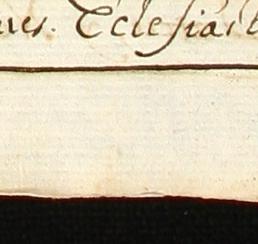 nes. Eclesiast